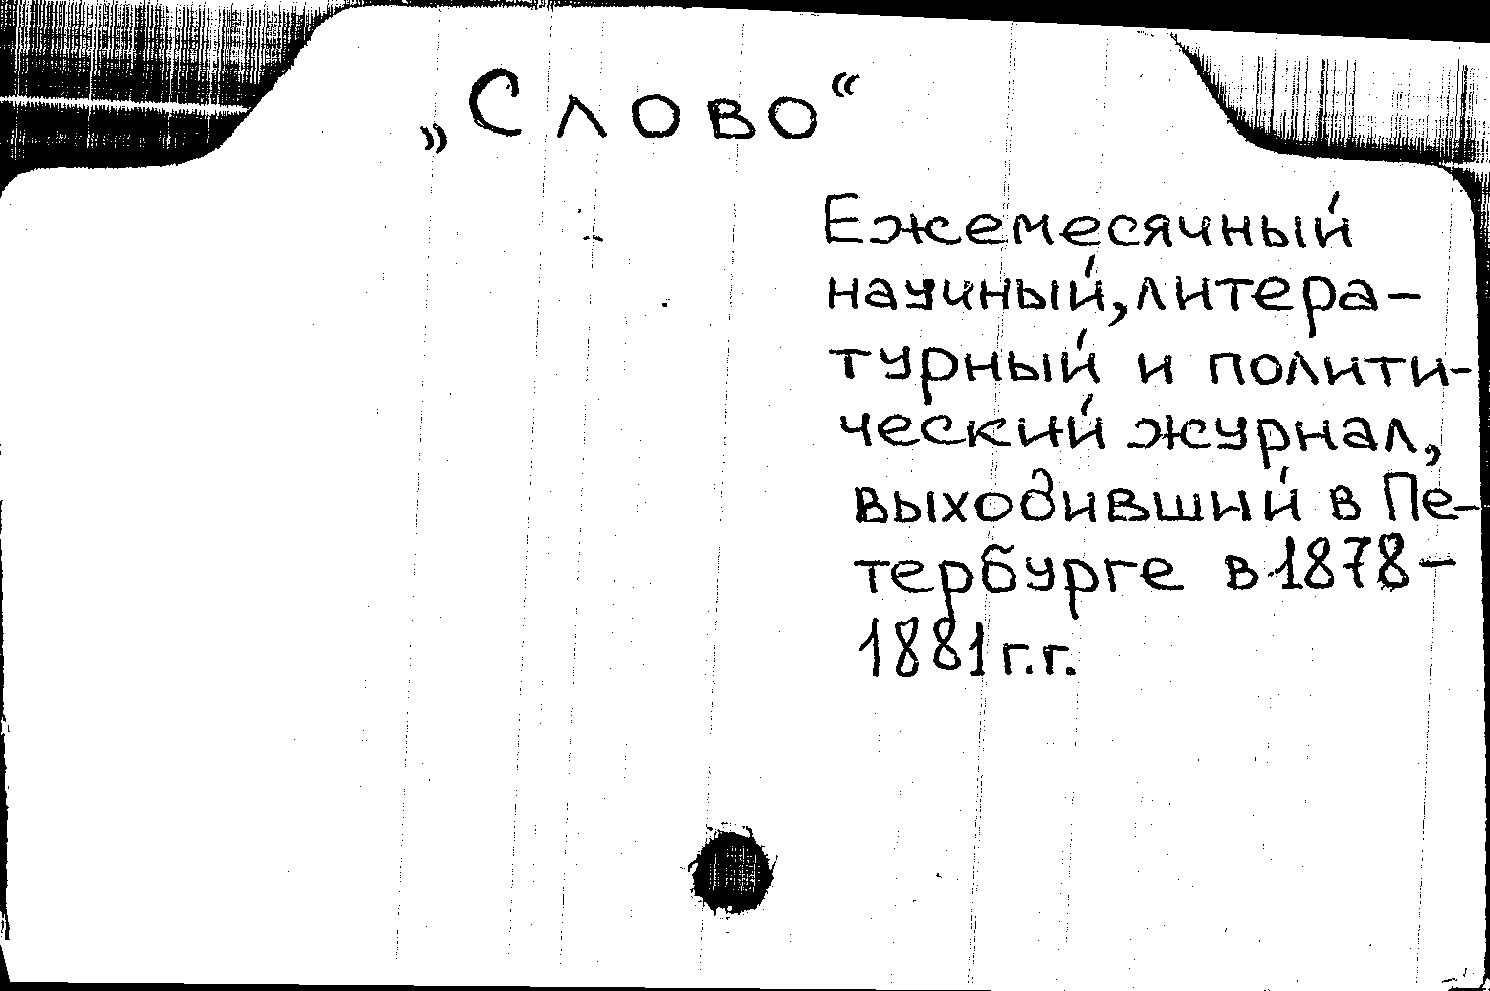 „Слово“
Ежемесячный
научный, литера-
турный и полити-
ческий журнал,
выходивший в Пе-
тербурге в 1878-
1881 г.г.